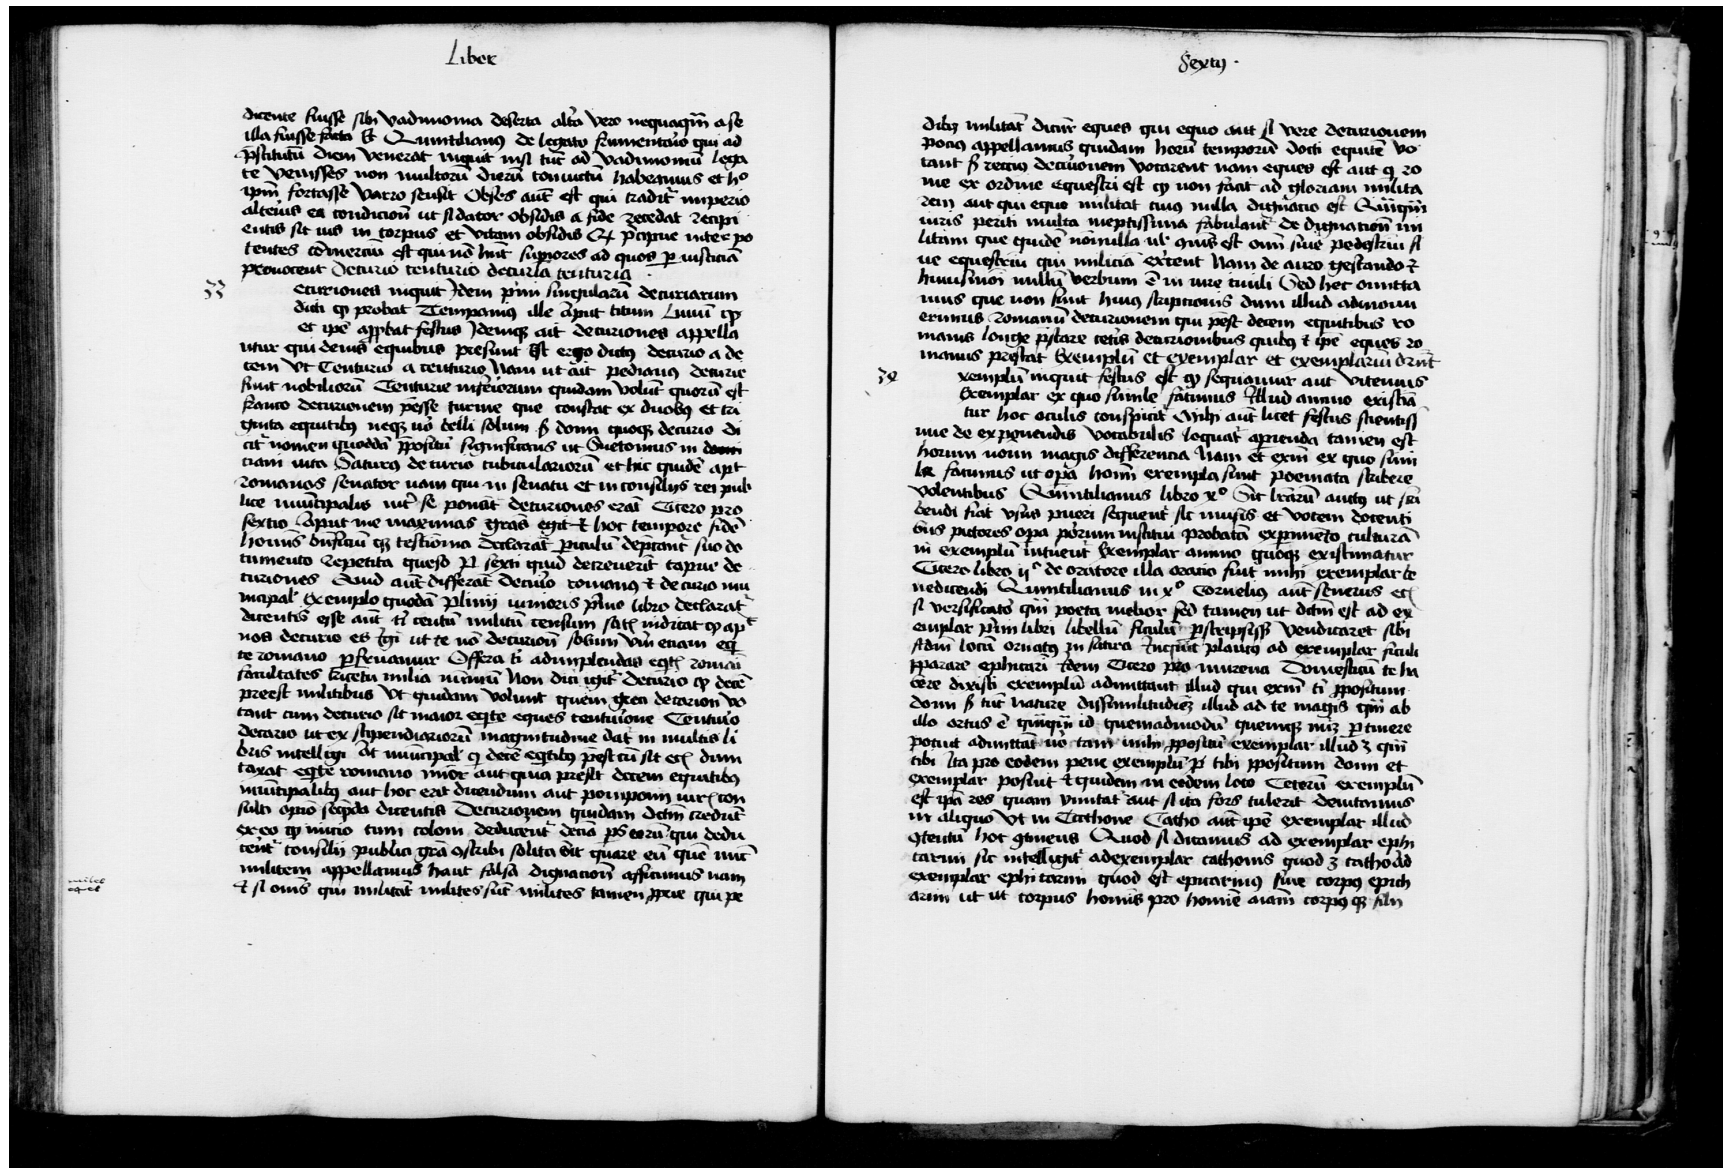 Liber
dicente fuisse sibi vadimonia deserta altō vero nequaqm̄ a se
illa fuisse facta Et Quintilianus de legato frumentario qui ad
p̄stitutū diem venerat inquit nisi tuc̄ ad vadimoniū lega
te venisses non multorū dierū convictū habeamus et hº
ipm̄ fortasse varro sensit Obses aut̄ est qui tradit̄ imperio
alterius ea condicion̄ ut si dator obsidis a fide recedat recipi
entis sit ius in corpus et vitam obsidis p̄cipue inter po
tentes cōmerciū est qui nō hn̄t supiores ad quos p iusticiā
provocent Decurio centurio decuria centuria
33
ecuriones inquit Idem primi singularū decuriarum
dicti qp probat Tempanius ille apud titum Liviū
et ip̄e app̄bat festus Idemq ait decuriones appella
utur qui denis equibus presunt Est ergo dictus decurio a de
cem Ut Centurio a centurio Nam ut ait pedianus decurie
sunt nobiliorū Centurie inferiorum quidam volūt quorū est
franco decurionem p̄esse turme que constat ex duobus et tri
ginta equitibus neq vō belli solum s domi quoq decurio di
cit̄ nomen quoddā p̄positū significans ut Suetonius in
ciani vita Saturus decurio cubiculariorū et hic quidē apt
romanos senator nam qui in senatu et in consilijs rei pub
lice municipalis se ponūt decuriones erāt Cicero pro
sextio Capue me maximas grās egit et hoc tempore fidē
hominis bn̄ficiū testimonia declarāt piculū dep̄cant̄ suo do
cumento Repetita queso P sexti quid decreverīt capue de
curiones Quid aut̄ differat decurio romanus et decurio mu
nicipal̄ Exemplo quodā plinij iunioris p̄mo libro declarat̄
dicentis esse aut̄ t̄ centū militū censum satis indicat qp ap
nos decurio es Igi ut te nō decurion̄ solum vūm etiam eq̄
te romano pfruamur Offero t̄i adimplendas eqtis romani
facultates trecetū milia numū Non dici igit̄ decurio qp decē
preest militibus Ut quidam volunt quem greci decarion vo
cant cum decurio sit maior eqite eques centurione Centurio
decario ut ex stipendiariorū magnitudine dat̄ in multis li
bris intelligi At municipal̄ qi decē eqtibus p̄est cū sit etc̄ dum
taxat eqite romano mīor aut quia presit decem equitibus
municipalibus aut hoc erit dicendum aut pomponii iuris con
sulti opio secp̄da dicentis Decurionem quidam dictm̄ credūt
ex eo qp inicio cum coloni deducerēt̄ decia ps eorū qui dedu
cerēt̄ consilii publici grā gscribi solita sit quare eū quē nūc
militem appellamus haut falsā dignacion̄ afficimus nam
et si om̄is qui militāt̄ milites sūt milites tamen p̄prie qui pe
miles
eques
Sextus ·
dibus militāt̄ dicit̄ eques qui equo aut si vere decurionem
pocius appellamus quidam horū temporū docti equitē vo
cant s rectius decurionem vocarent nam eques est aut q ro
me ex ordine equestri est qp non facit ad gloriam milita
rem aut qui equo militat cuius nulla dignacio est Quīqm̄
iuris periti multa ineptissima fabulant̄ de dignacion̄ mi
litam que quidē nōnulla ut qm̄is est om̄i sive pedestrium si
ve equestrium qui miliciā exercent Nam de auro gestando et
huiusmōi nullū verbum ē in iure civili Sed hec omitta
mus que non sunt huius scriptionis dum illud admonu
erimus Romanū decurionem qui p̄est decem equitibus ro
manis longe p̄stare cetis decurionibus quibus et ip̄e eques ro
manus prestat Exemplū et exemplar et exemplarium drn̄t
34
xemplū inquit festus est qp sequamur aut vitemus
Exemplar ex quo simile facimus Illud animo existiā
tur hoc oculis conspicit̄ Mihi aut̄ licet festus scientiss̄
me de exponendis vocabulis loquat̄ aperienda tamen est
horum noīm magis differencia Nam et exm̄ ex quo simi
le facimus ut opa homi exempla sunt poemata scribere
volentibus Quintilianus libro xº Sic lrārū auctus ut scri
bendi fiat usus pueri sequent̄ sic musis et vocem docenti
bus pictores opa p̄orum institui probatā experimēto culturā
in exemplū intuent̄ Exemplar animo quoq existimatur
Cicero libro ijº de oratore illa oracio fuit mihi exemplar te
nedicendi Quintilianus in xº Cornelius aut̄ severus etc̄
si versificator qm̄ poeta melior sed tamen ut dictm̄ est ad ex
emplar p̄imi libri libellū siculū pscripsiss̄ vendicaret sibi
scdm̄ locū oracius in satira Inquit plautus ad exemplar siculi
pparare ephicarmi Idem Cicero pro murena Domesticū te ha
bere dixisti exemplū admittant illud qui exm̄ t̄i ppositum
domi s tuc̄ nature dissimilitudiez illud ad te magis qm̄ ab
illo ortus ē quīqm̄ id quemadmodū quemq nr̄z ptinere
potuit admittat̄ vō tam mihi ppositū exemplar illud z qm̄
tibi Ita pro eodem pene exemplū p tibi ppositum domi et
exemplar posuit et quidem in eodem loco Ceterū exemplū
est ip̄a res quam vinitat̄ aut si ita fors tulerit devitamus
in aliquo Ut in Cathone Catho aut̄ ip̄e exemplar illud
gtentū hoc gtinens Quod si dicamus ad exemplar ephi
carmi sic intelligit̄ ad exemplar cathonis quod z catho ad
exemplar ephicarmi quod est epicarmus sive corpus epich
armi ut ut corpus hominis pro homīe aiam̄ corpus q sibi